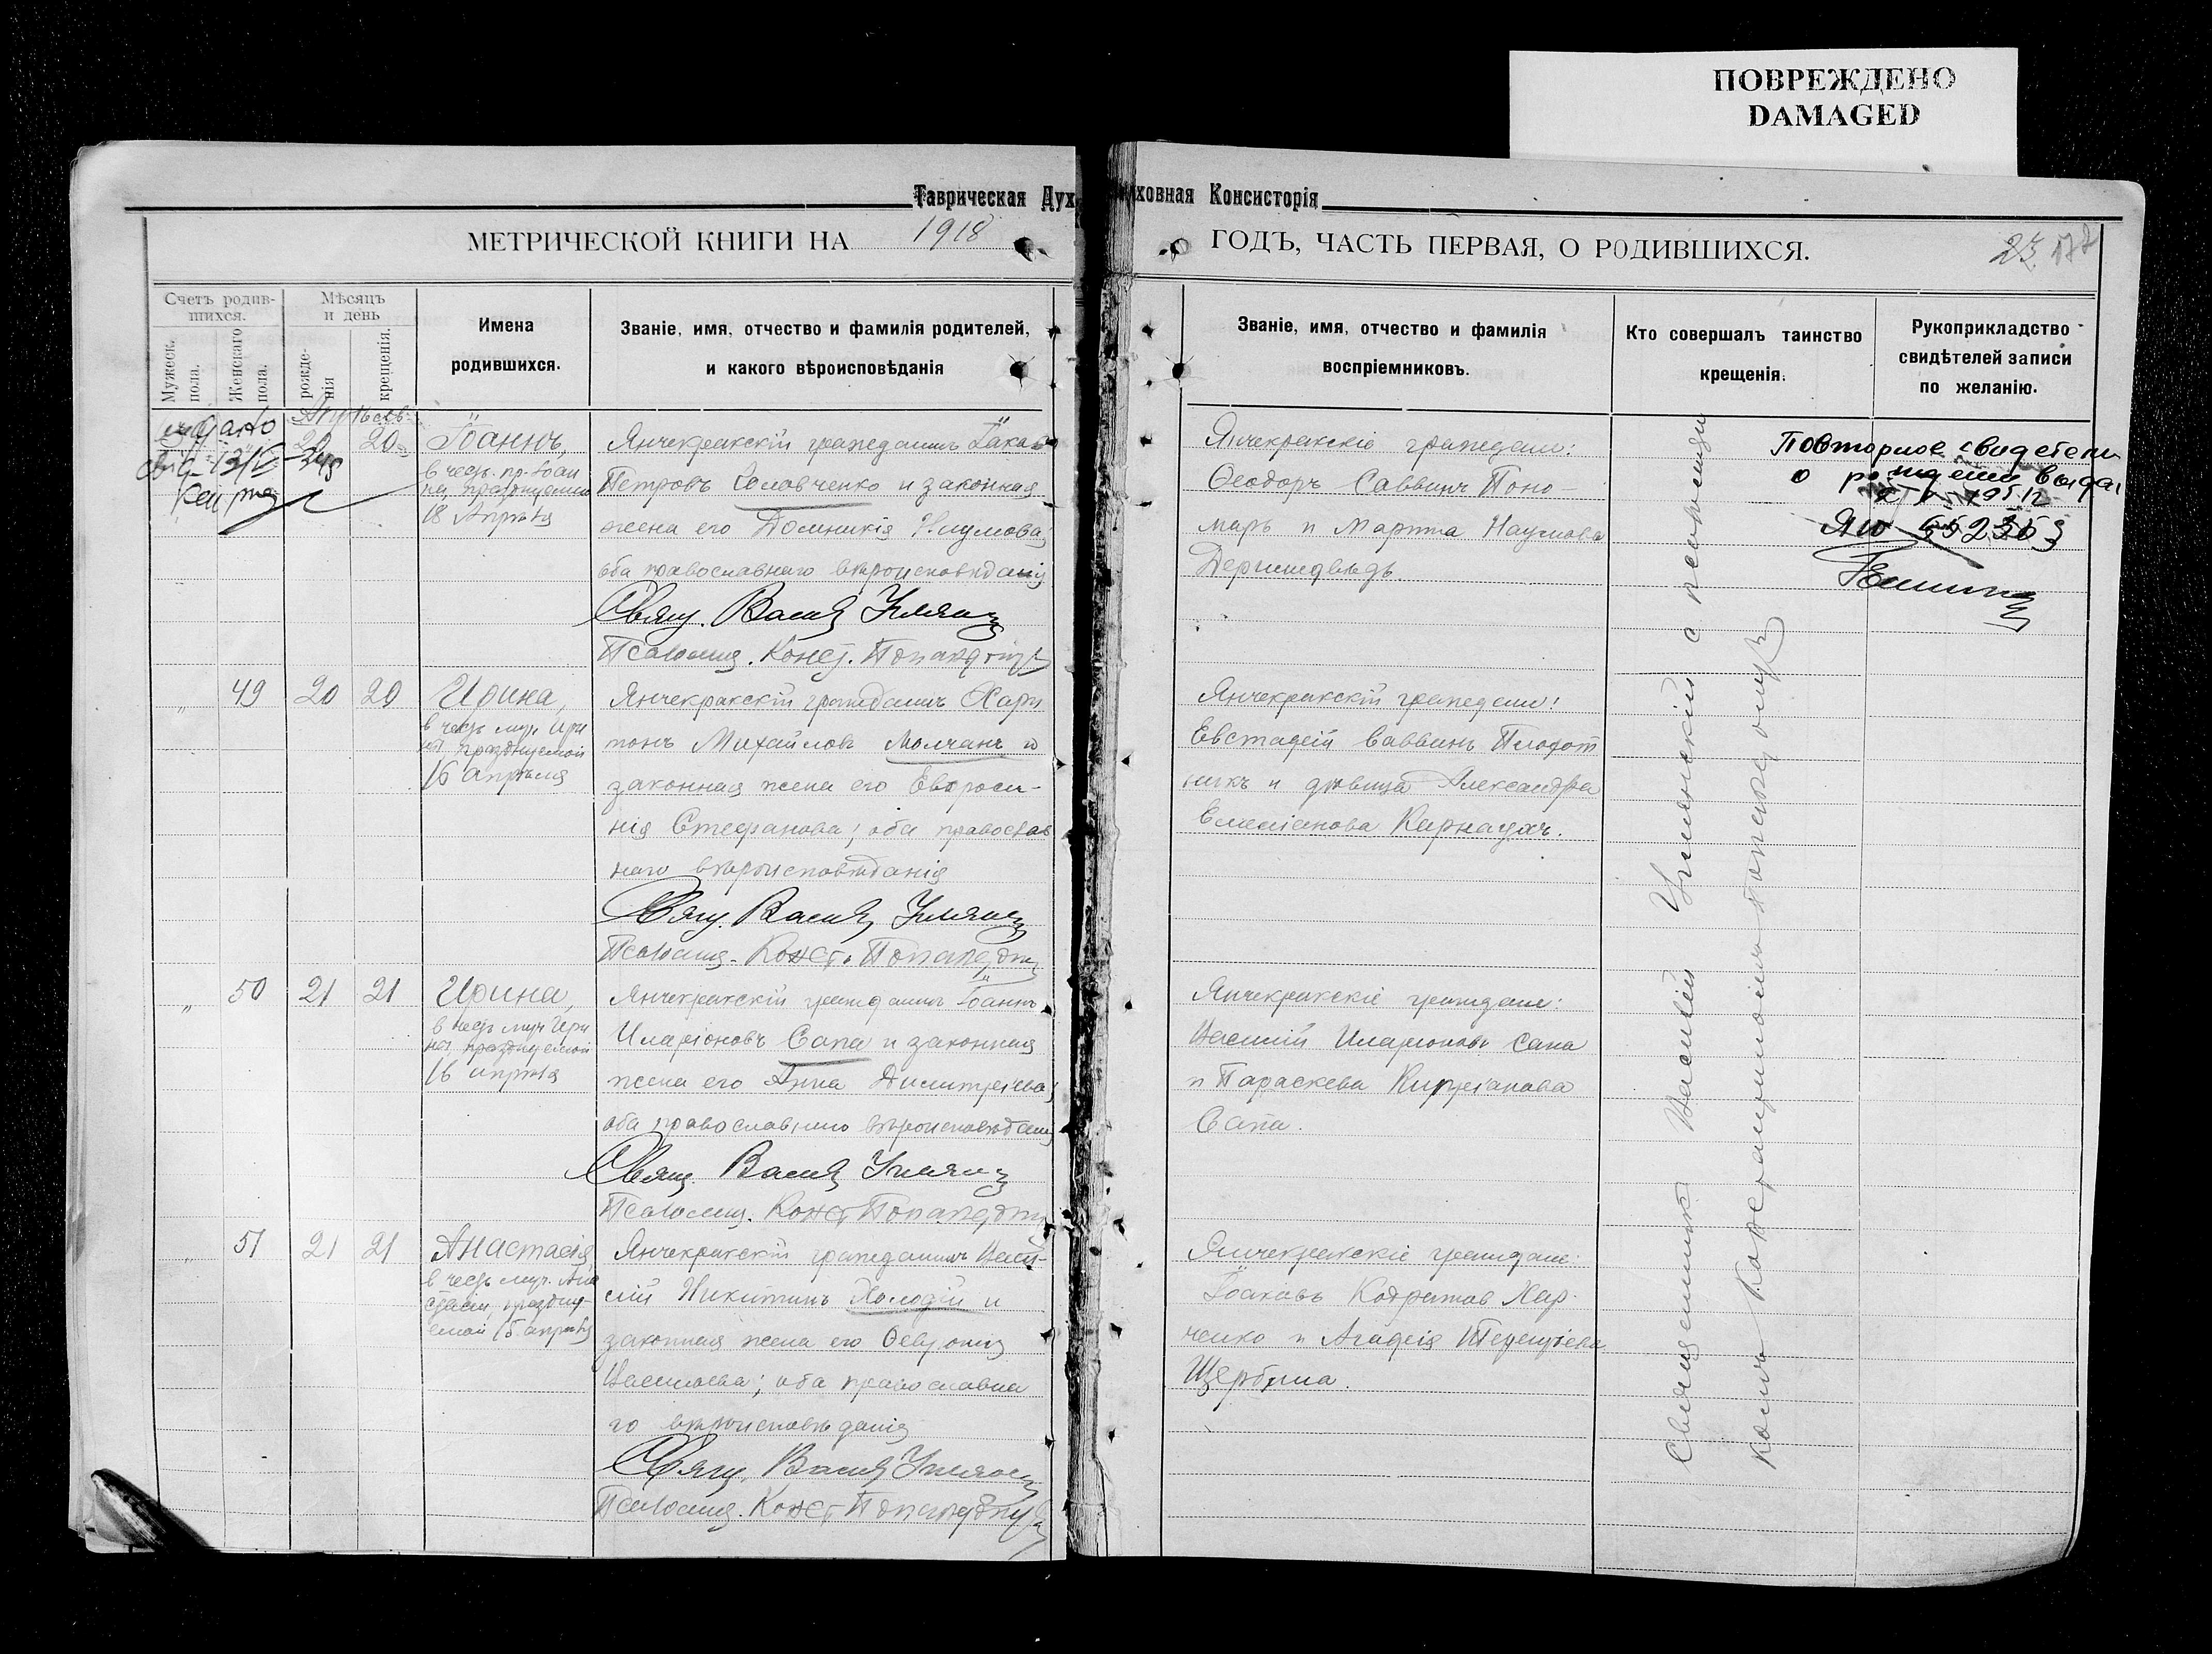 ПОВРЕЖДЕНО
DAMAGED
Таврическая Духовная Консисторія
МЕТРИЧЕСКОЙ КНИГИ НА 1918 ГОДЪ, ЧАСТЬ ПЕРВАЯ, О РОДИВШИХСЯ.
Счетъ родив-
шихся.
Мужеск.
пола.
Женскаго
пола.
Мѣсяцъ
и день
рожде-
нія
крещенія.
Имена
родившихся.
Званіе, имя, отчество и фамилія родителей,
и какого вѣроисповѣданія
Званіе, имя, отчество и фамилія
воспріемниковъ.
Кто совершалъ таинство
крещенія.
Рукоприкладство
свидѣтелей записи
по желанію.
20
Іоаннъ,
в честь пр. Іоан
на, празднуемаго
18 Апрѣля
Янчекракскій гражданинъ Іаковъ
Петровъ Головченко и законная
жена его Домникія Наумова;
оба православнаго вѣроисповѣданія
Свящ. Василій
Псаломщ. Конст.
Янчекракскіе граждане:
Ѳеодоръ Саввинъ Поно-
марь и Марѳа Наумова
Дерименведь
Повторное свидетель
о рождении выдан
Яю
49 20 20
Ирина,
в честь муч. Ири
ны празднуемой
16 апрѣля
Янчекракскій гражданинъ Хари
тонъ Михайловъ Молчанъ и
законная жена его Евфроси-
нія Стефанова; оба православ
наго вѣроисповѣданія
Свящ. Василій
Псаломщ. Конст.
Янчекракскій граждане:
Евстафій Саввинъ Плохот
никъ и дѣвица Александра
Емиліанова Карнаухъ.
50 21 21
Ирина,
в честь муч Ири
ны празднуемой
16 апрѣля
Янчекракскій гражданинъ Іоаннъ
Иларіоновъ Сапа и законная
жена его Анна Димитріева;
оба православнаго вѣроисповѣданія
Свящ. Василій
Псаломщ. Конст
Янчекракскіе граждане:
Василій Иларіоновъ Сапа
и Параскева Кипріанова
Сапа.
51 21 21
Анастасія
в честь муч. Ана
стасіи, праздну-
емой 15 апрѣля
Янчекракскій гражданинъ Васи-
лій Никитинъ Холодій и
законная жена его Ѳеврония
Васильева; оба православна
го вѣроисповѣданія
Свящ. Василій
Псаломщ. Конст
Янчекракскіе граждане:
Іаковъ Кодратов Хар-
ченко и Агафія Терентіева
Щербина.
Священникъ Василій с псаломщи
комъ Константиномъ